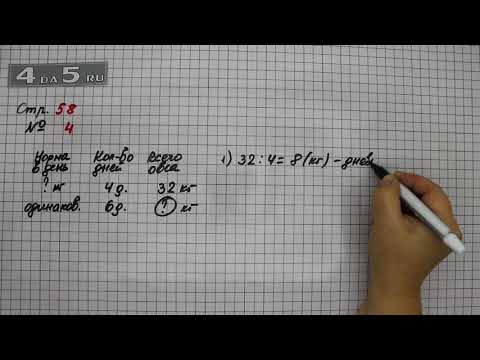 4 DA 5 RU
Стр. 58
№ 4
Норма Кол-во Всего
в день дней овса
? кг 4 д. 32 кг
одинаков. 6 д. ? кг
1) 32 : 4 = 8 (кг) - днев